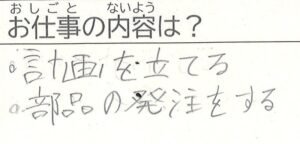 おしごと ないよう
お仕事の内容は？
。計画を立てる
。部品の発注をする